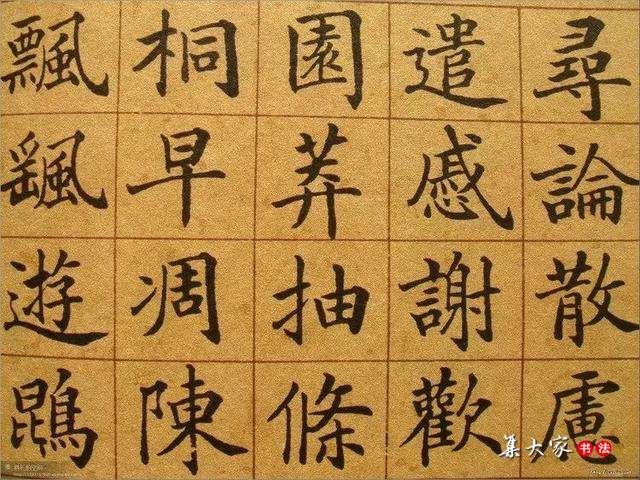 尋論散慮
遣慼謝歡
園莽抽條
桐早凋陳
飄颻遊鵾
集大家书法